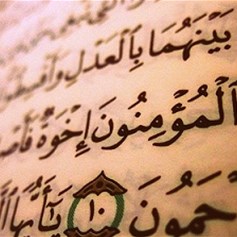 بَيْنَهُمَا بِٱلْعَدْلِ وَأَقْسِطُوٓا۟
ٱلْمُؤْمِنُونَ إِخْوَةٌ فَأَصْ
حَمُونَ ١٠ يَٰٓأَيُّهَا ٱلَّ